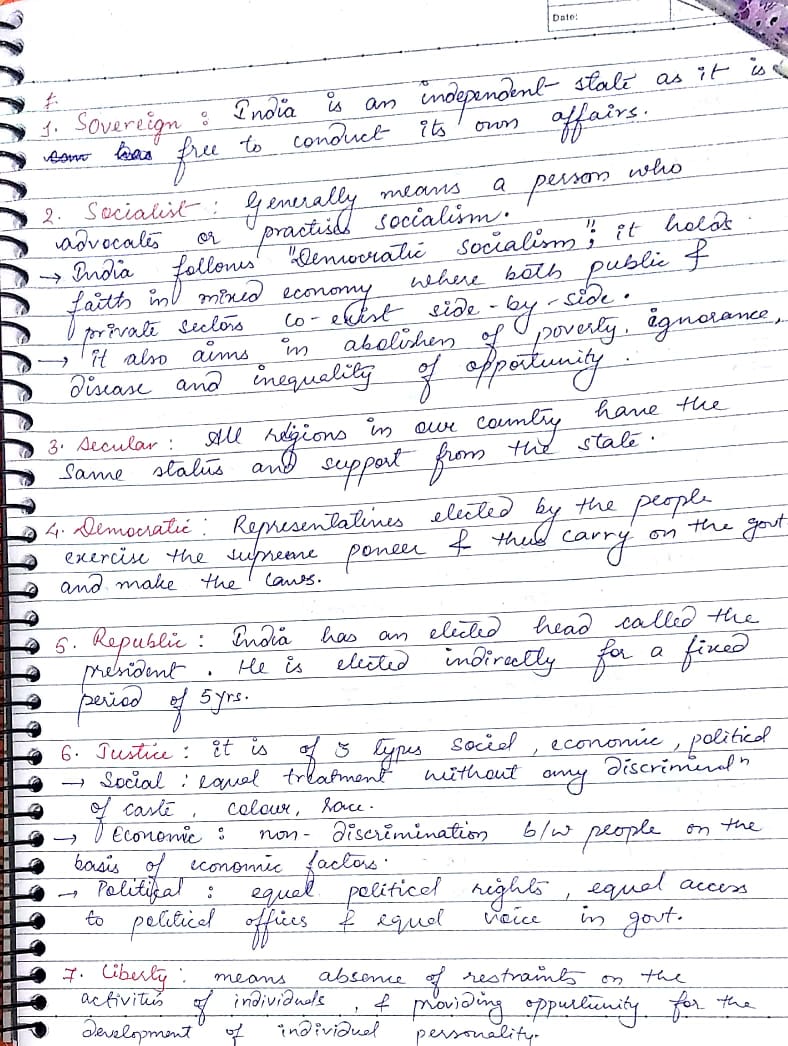 Date:
1. Sovereign : India is an independent state as it is
free to conduct its own affairs.
2. Socialist : Generally means a person who
advocates or practises socialism.
→ India follows "Democratic socialism"; it holds
faith in mixed economy where both public &
private sectors co-exist side-by-side.
→ it also aims in abolishen of poverty, ignorance,
disease and inequality of opportunity.
3. Secular : All religions in our country have the
same status and support from the state.
4. Democratic : Representatives elected by the people
exercise the supreme power & thus carry on the govt
and make the laws.
5. Republic : India has an elected head called the
president. He is elected indirectly for a fixed
period of 5yrs.
6. Justice : it is of 3 types social, economic, political
→ Social : equal treatment without any discriminatn
of caste, colour, race.
→ Economic : non-discrimination b/w people on the
basis of economic factors.
→ Political : equal political rights, equal access
to political offices & equal voice in govt.
7. Liberty : means absence of restraints on the
activities of individuals, & providing oppurtunity for the
development of individual personality.